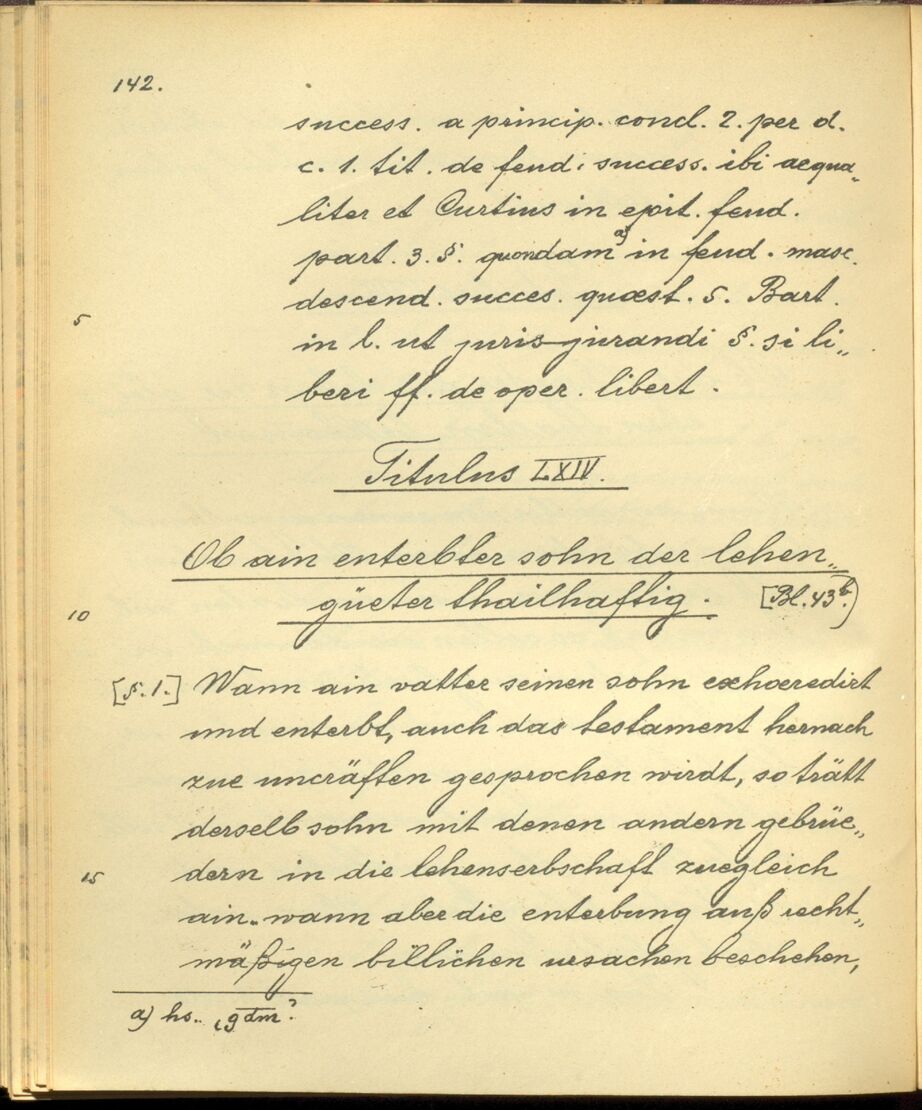 142.
success. a princip. concl. 2. per d.
c. 1. tit. de feud. success. ibi aequa„
liter et Curtius in epit. feud.
part. 3. §. quondam a) in feud. masc.
descend. succes. quæst. 5. Bart.
5
in l. ut jurisjurandi §. si li„
beri ff. de oper. libert.
Titulus LXIV.
Ob ain enterbter sohn der lehen„
güeter thailhaftig. [Bl. 43b.)
10
[§. 1.] Wann ain vatter seinen sohn exhæredirt
und enterbt, auch das testament hernach
zue uncräften gesprochen wirdt, so trätt
derselb sohn mit denen andern gebrüe„
dern in die lehenserbschaft zuegleich
15
ain. wann aber die enterbung auß recht„
mäßigen billichen ursachen beschehen,
a) hs. „gdm“?